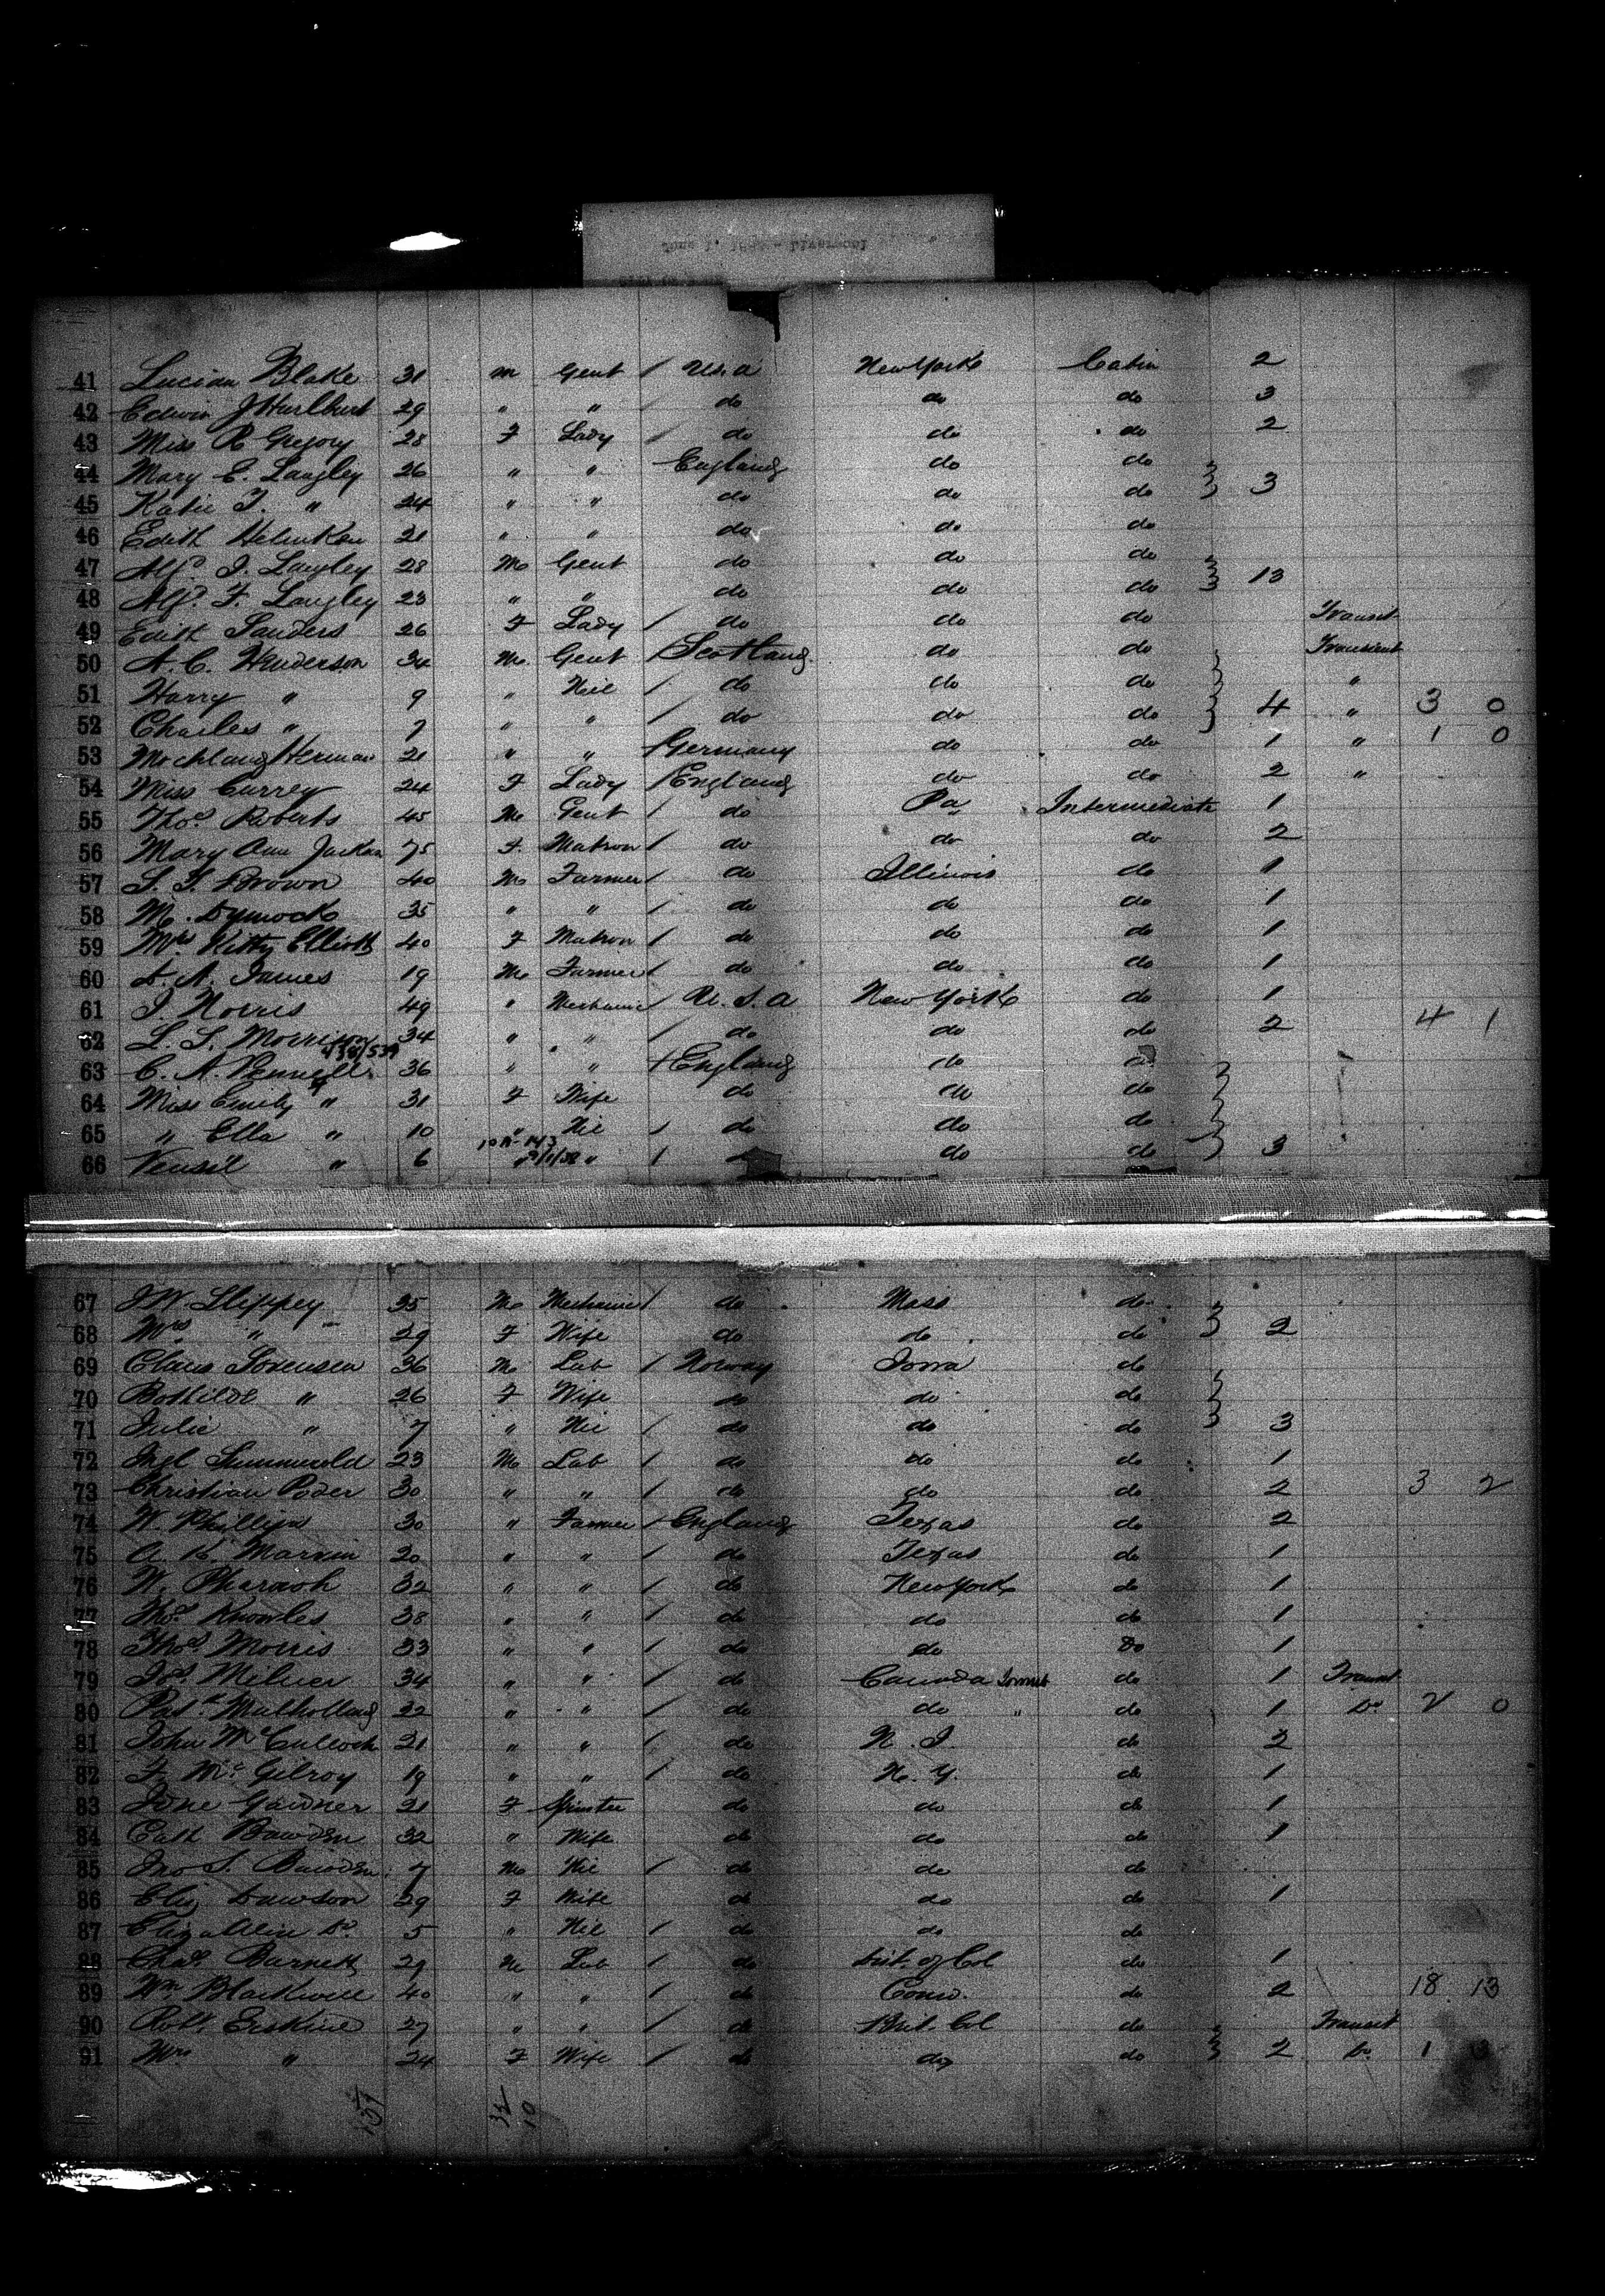 41 Lucian Blake 31 m Gent / U.S.a New York Cabin 2
42 Edwin J Hurlburt 29 " " / do do do 3
43 Miss R Gregory 28 F Lady / do do do 2
44 Mary E. Langley 26 " " England do do
45 Katie J. " 24 " " do do do 3
46 Edith Helmken 21 " " do do do
47 Alfd J. Langley 28 M Gent do do do
48 Alfd F. Langley 23 " " do do do 13
49 Edith Sanders 26 F Lady / do do do Transit
50 A. C. Henderson 34 M Gent / Scotland do do Transient
51 Harry " 9 " Nil / do do do "
52 Charles " 7 " " / do do do 4 " 3 0
53 Herman 21 " " / Germany do do 1 " 1 0
54 Miss Currey 24 F Lady / England do do 2 "
55 Thos Roberts 45 M Gent / do Pa Intermediate 1
56 Mary Ann Jackson 75 F. Matron / do do do 2
57 Brown 40 M Farmer / do Illinois do 1
58 M. Dymock 35 " " / do do do 1
59 Mrs Kitty Elliott 40 F Matron / do do do 1
60 A. James 19 M Farmer / do do do 1
61 J. Norris 49 " Mechanic / U.S.a New York do 1
62 L. S. Morrison 34 " " / do do do 2 4 1
63 C. A. 36 " " / England do do
64 Miss Emily " 31 F Wife do do do
65 " Ella " 10 " Nil / do do do
66 " 6 " " / do do 3
67 J W. 35 M Mechanic / do Mass do
68 Mrs " 29 F Wife do do do 2
69 Claus Sorensen 36 M Lab / Norway Iowa do
70 Bothilde " 26 F Wife do do do
71 Julie " 7 " Nil / do do do 3
72 23 M Lab / do do do 1
73 Christian Poder 30 " " / do do do 2 3 2
74 W. Phillips 30 " Farmer / England Texas do 2
75 Marvin 20 " " / do Texas do 1
76 W. Pharaoh 32 " " / do New York do 1
77 Thos Knowles 38 " " / do do do 1
78 Thos Morris 33 " " / do do Do 1
79 Jos Milner 34 " " / do Canada Transit do 1 Transit
80 Patk Mulholland 22 " " / do do " do 1 Do 2 0
81 John McCulloch 21 " " / do N. J. do 2
82 F. McGilroy 19 " " / do N. Y. do 1
83 Jane Gardner 21 F Spinster do do do 1
84 Cath Bawden 32 " Wife do do do 1
85 Jno S. Bawden 7 M Nil / do do do
86 Eliz Dawson 29 F Wife do do do 1
87 Do 5 " Nil / do do do
88 Chas Barnett 29 M Lab / do Dist. of Col do 1
89 Wm Blackwell 40 " " / do Conn. do 2 18 13
90 Robt Erskine 27 " " / do Brit. Col do Transit
91 Mrs " 24 F Wife / do do do 2 Do 1